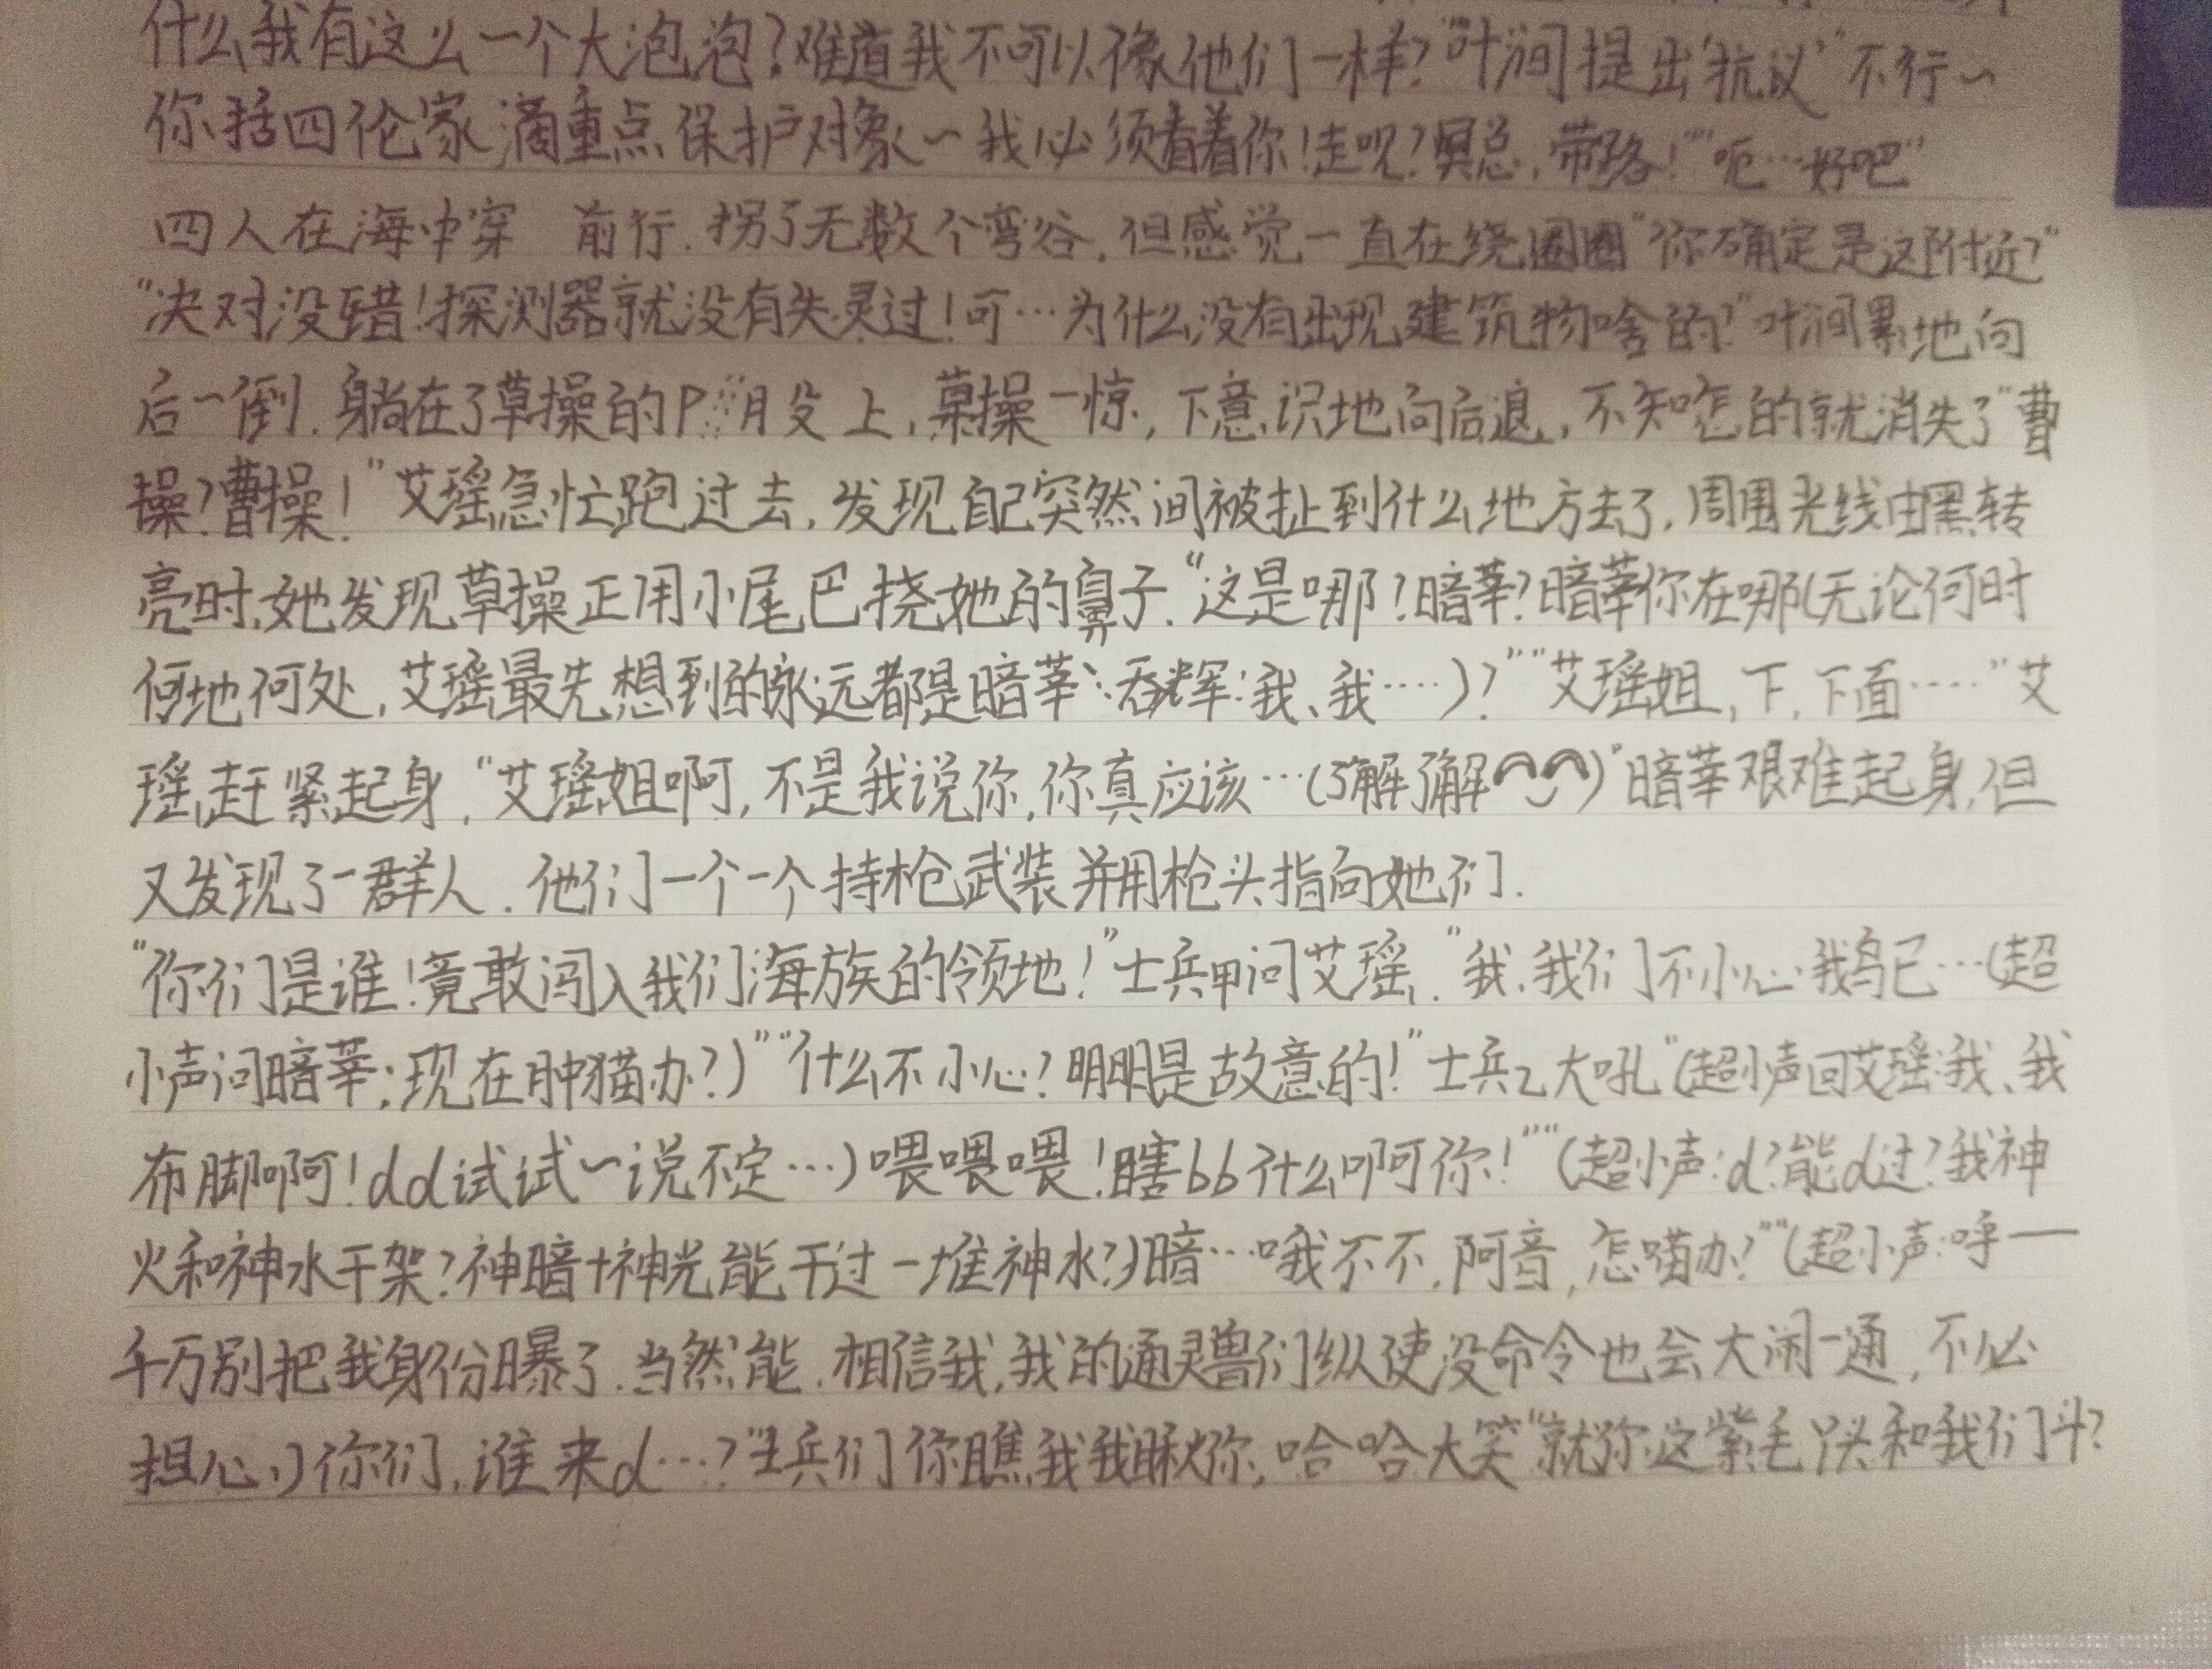 什么我有这么一个大泡泡?难道我不可以像他们一样?"叶涧提出抗议"不行~
你括四伦家滴重点保护对象~我必须看着你!走呗?奥总,带路!""呃…好吧"
四人在海中穿 前行.拐了无数个弯谷,但感觉一直在绕圈圈"你确定是这附近?"
"决对没错!探测器就没有失灵过!可…为什么没有出现建筑物啥的?"叶涧累地向
后一倒.身躺在了草操的P月殳上,草操一惊,下意识地向后退,不知咋的就消失了"曹
操?曹操!"艾瑶急忙跑过去,发现自己突然间被扯到什么地方去了,周围光线由黑转
亮时,她发现草操正用小尾巴挠她的鼻子."这是哪?暗莘?暗莘你在哪(无论何时
何地何处,艾瑶最先想到的永远都是暗莘:吞辉:我、我……)?""艾瑶姐,下,下面……"艾
瑶赶紧起身,"艾瑶姐啊,不是我说你,你真应该…(了解了解)"暗莘艰难起身,但
又发现了一群人.他们一个一个持枪武装并用枪头指向她们.
"你们是谁!竟敢闯入我们海族的领地!"士兵甲问艾瑶."我,我们不小心我鸟已…(超
小声问暗莘:现在肿猫办?)""什么不小心?明明是故意的!"士兵乙大吼"(超小声回艾瑶:我、我
布脚啊!dd试试~说不定…)喂喂喂!瞎bb什么啊你!""(超小声:d?能d过?我神
火和神水干架?神暗+神光能干过一堆神水?)暗…哦不不,阿音,怎喵办?""(超小声:呼一
千万别把我身份曝了.当然能.相信我,我的通灵兽们纵使没命令也会大闹一通,不必
担心.)你们,谁来d…?"士兵们你瞧我我瞅你,哈哈大笑"就你这紫毛丫头和我们斗?